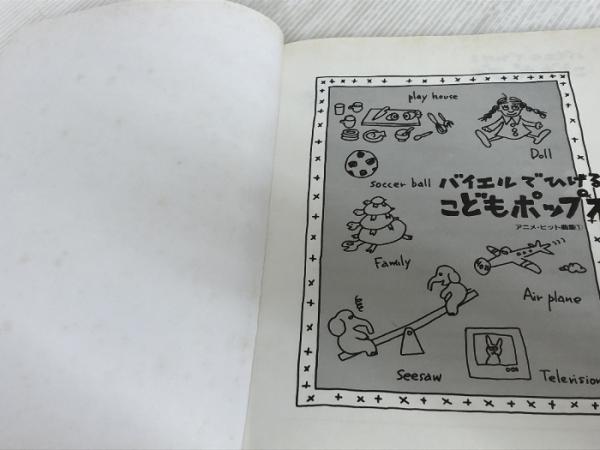 play house
Doll
soccer ball
バイエルでひける
こどもポップス
アニメ・ヒット曲集①
Family
Air plane
Seesaw
Television